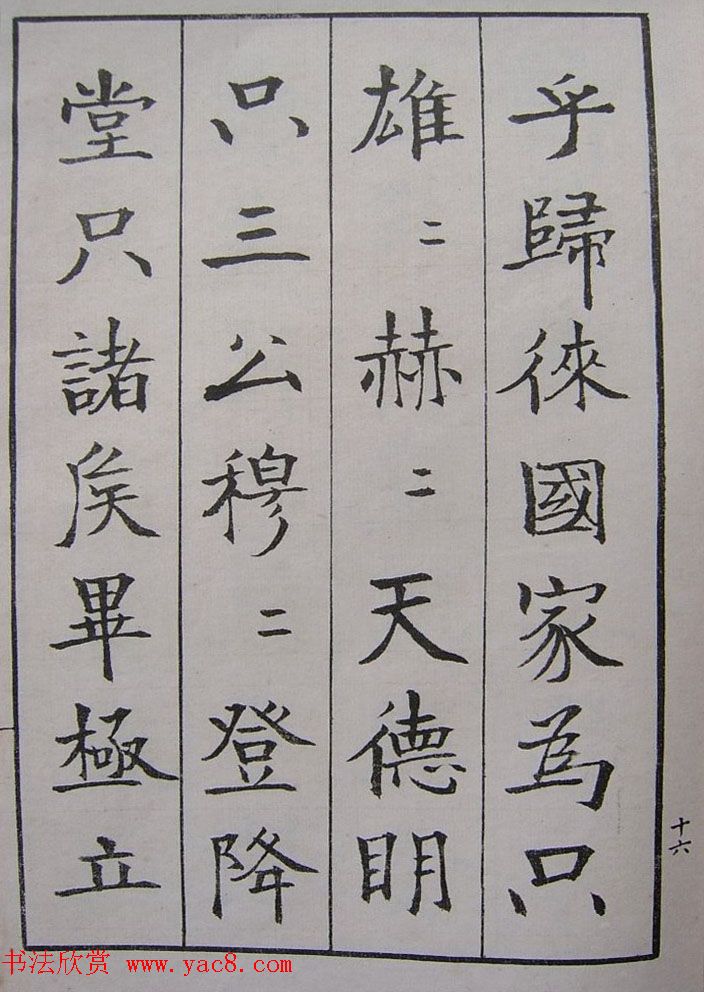 乎歸徠國家為只
雄二赫二天德明
只三公穆二登降
堂只諸矦畢極立
十六
书法欣赏 www.yac8.com